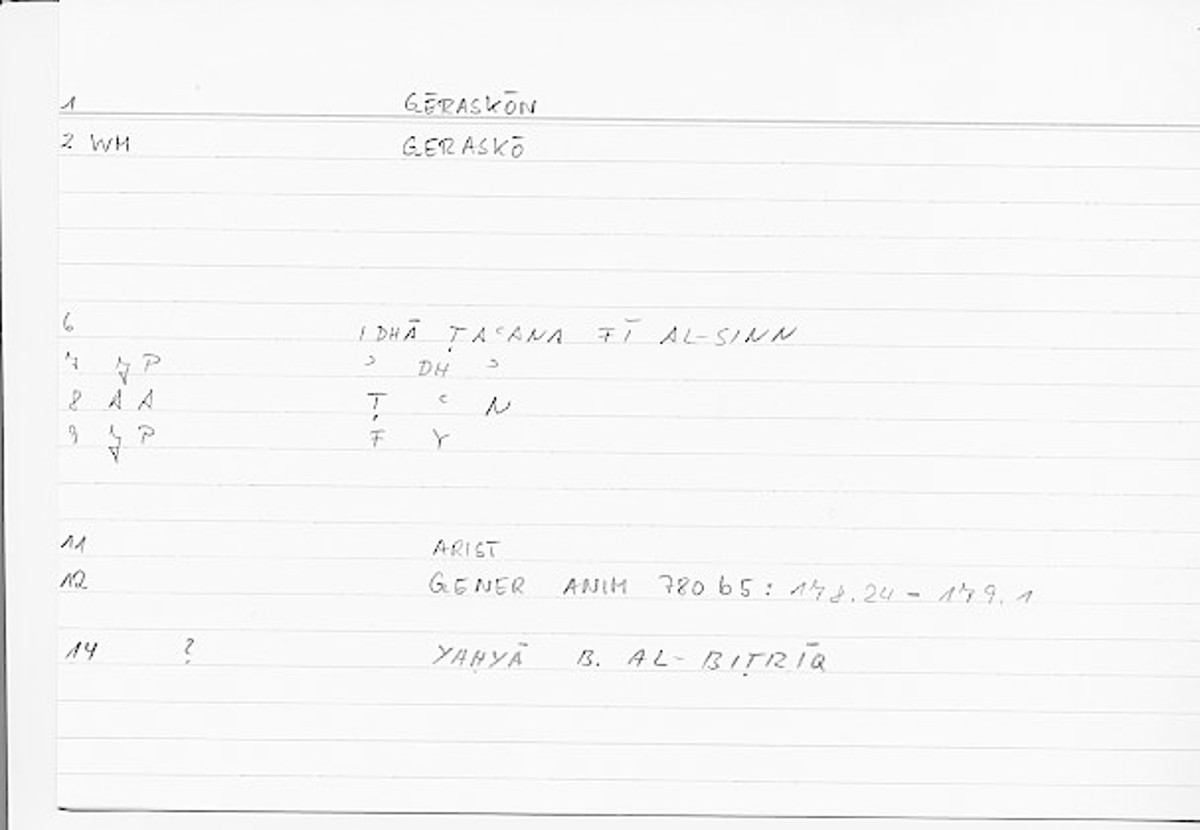 1 GĒRASKŌN
2 WM GERASKŌ
6 IDHĀ ṬAʿANA FĪ AL-SINN
7 JP ʾ DH ʾ
8 AA Ṭ ʿ N
9 JP F Y
11 ARIST
12 GENER ANIM 780 b5: 178.24 - 179.1
14 ? YAḤYĀ B. AL-BIṬRĪQ